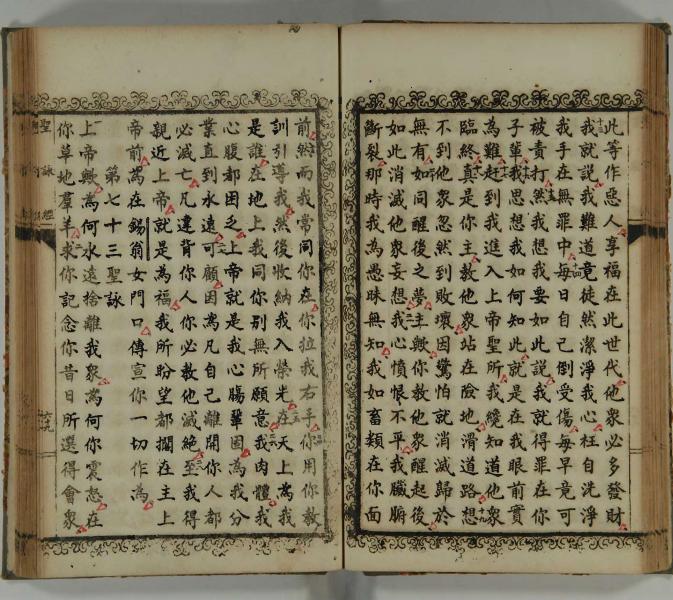 此等作惡人享福在此世代他衆必多發財
我就説我難道竟徒然潔淨我心枉自洗淨
我手在無罪中每日自己倒受傷每早竟可
被責打然我想我要如此説我就得罪在你
子輩我思想我如何知此就是在我眼前實
為難赶到我進入上帝聖所我纔知道他衆
臨終真是你主教他衆站在險地滑道路想
不到他衆忽然到敗壞因驚怕就消滅歸於
無有如同醒後之夢主歟你教他衆醒起後
如此消滅他衆妄想我心憤恨不平我臟腑
斷裂那時我為愚昧無知我如畜類在你面
前然而我常同你在你拉我右手你用你教
訓引導我然後收納我入榮光在天上為我
是誰在地上我同你别無所願意我肉體我
心腹都困乏上帝就是我心腸鞏固為我分
業直到永遠可顧因為凡自己離開你人都
必滅亡凡違背你人你必教他滅絶至我得
親近上帝就是為福我所盼望都擱在主上
帝前為在錫翁女門口傳宣你一切作為
第七十三聖詠
上帝歟為何永遠捨離我衆為何你震怒在
你草地羣羊求你記念你昔日所選得會衆
聖詠經